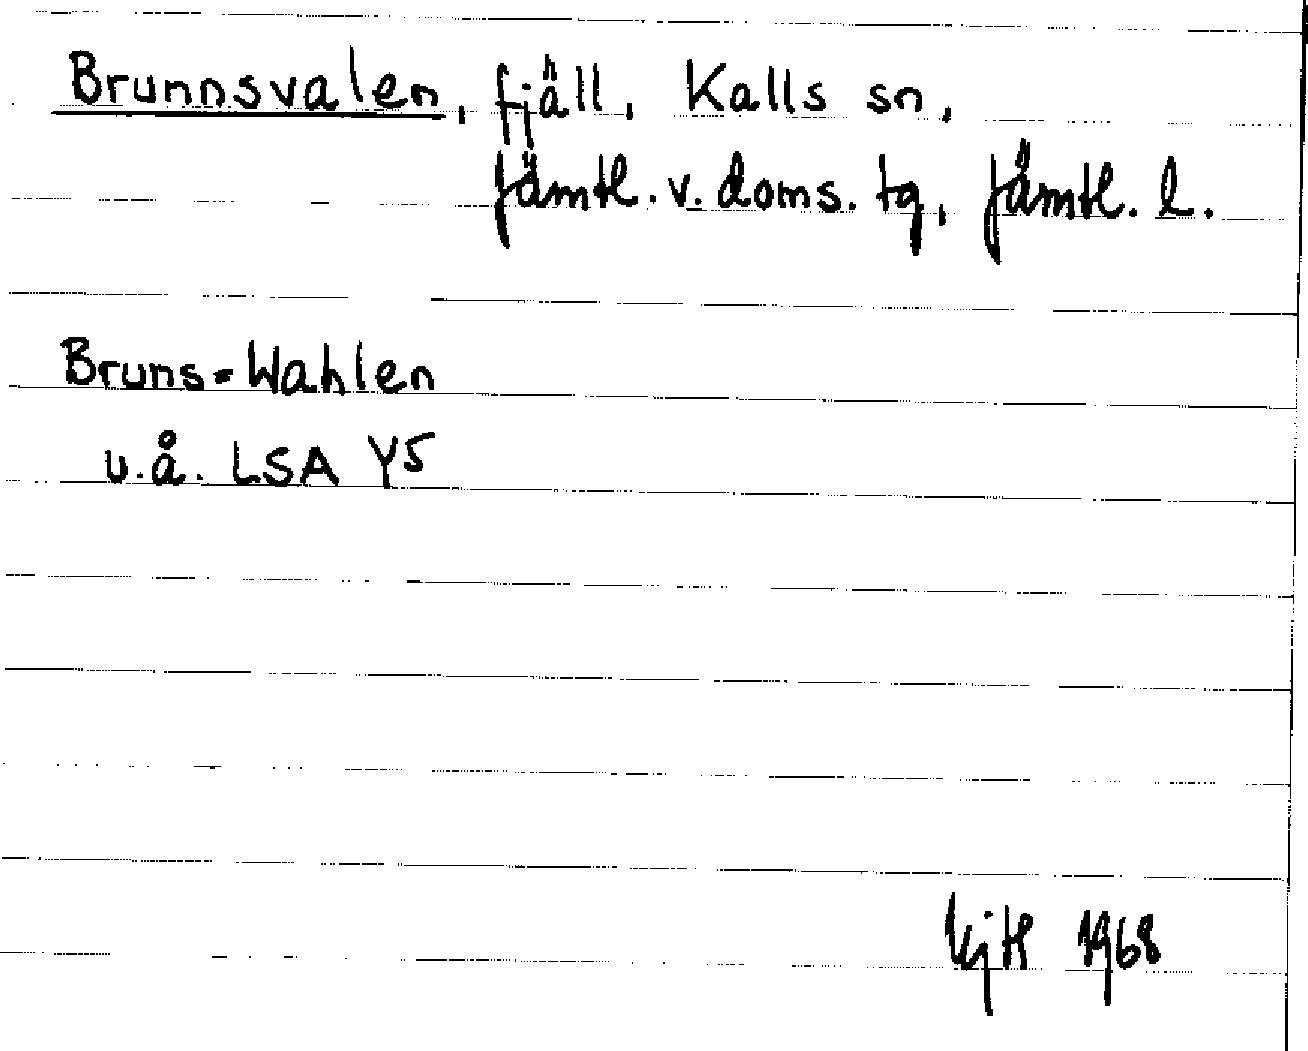 Brunnsvalen, fjäll, Kalls sn,
Jämtl. v. doms. tg, Jämtl. l.
Bruns-Wahlen
u.å. LSA Y5
1968